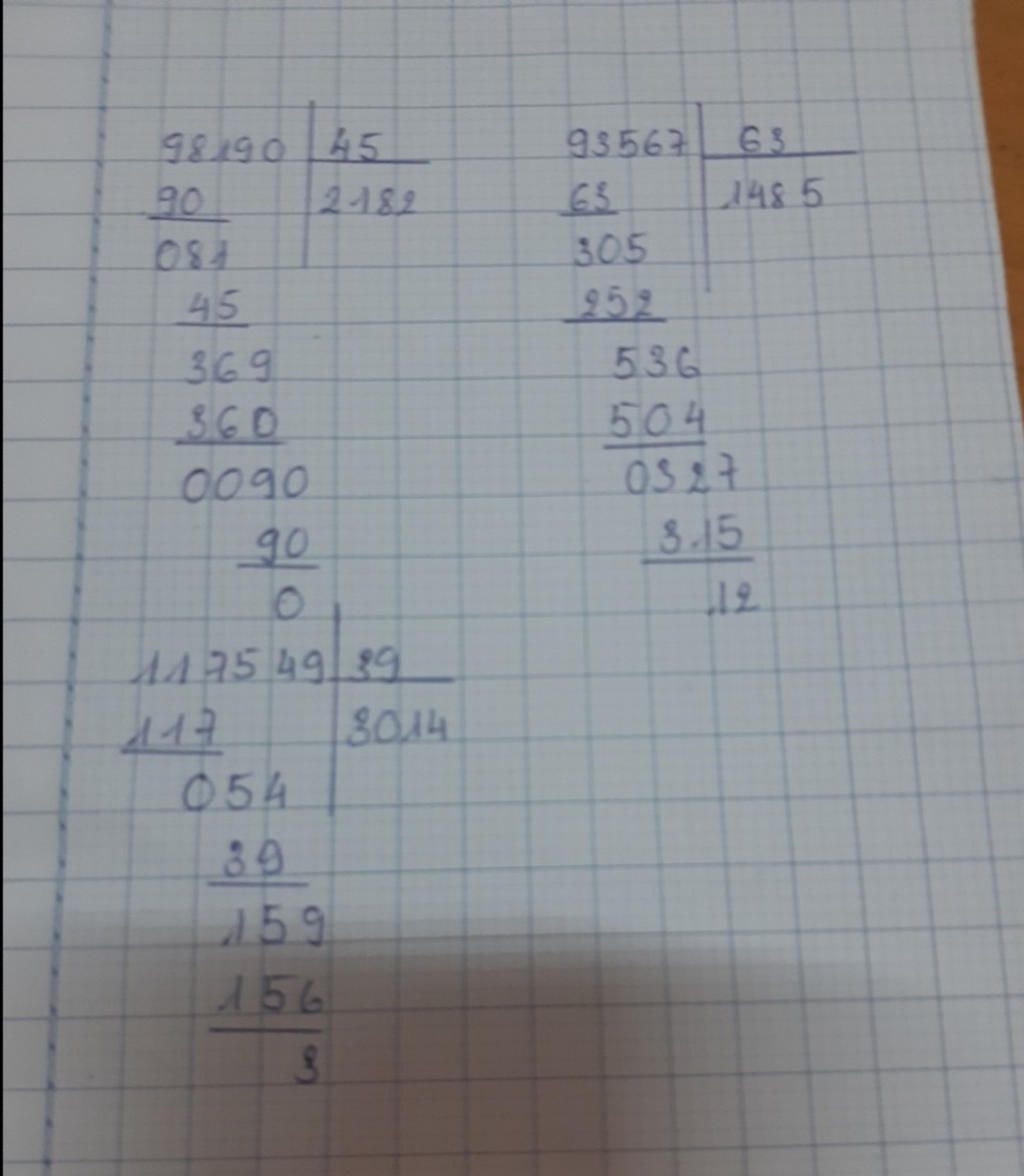 98190 45
90 2182
081
45
369
360
0090
90
0
93567 63
63 1485
305
252
536
504
0327
315
12
117549 39
117 3014
054
39
159
156
3